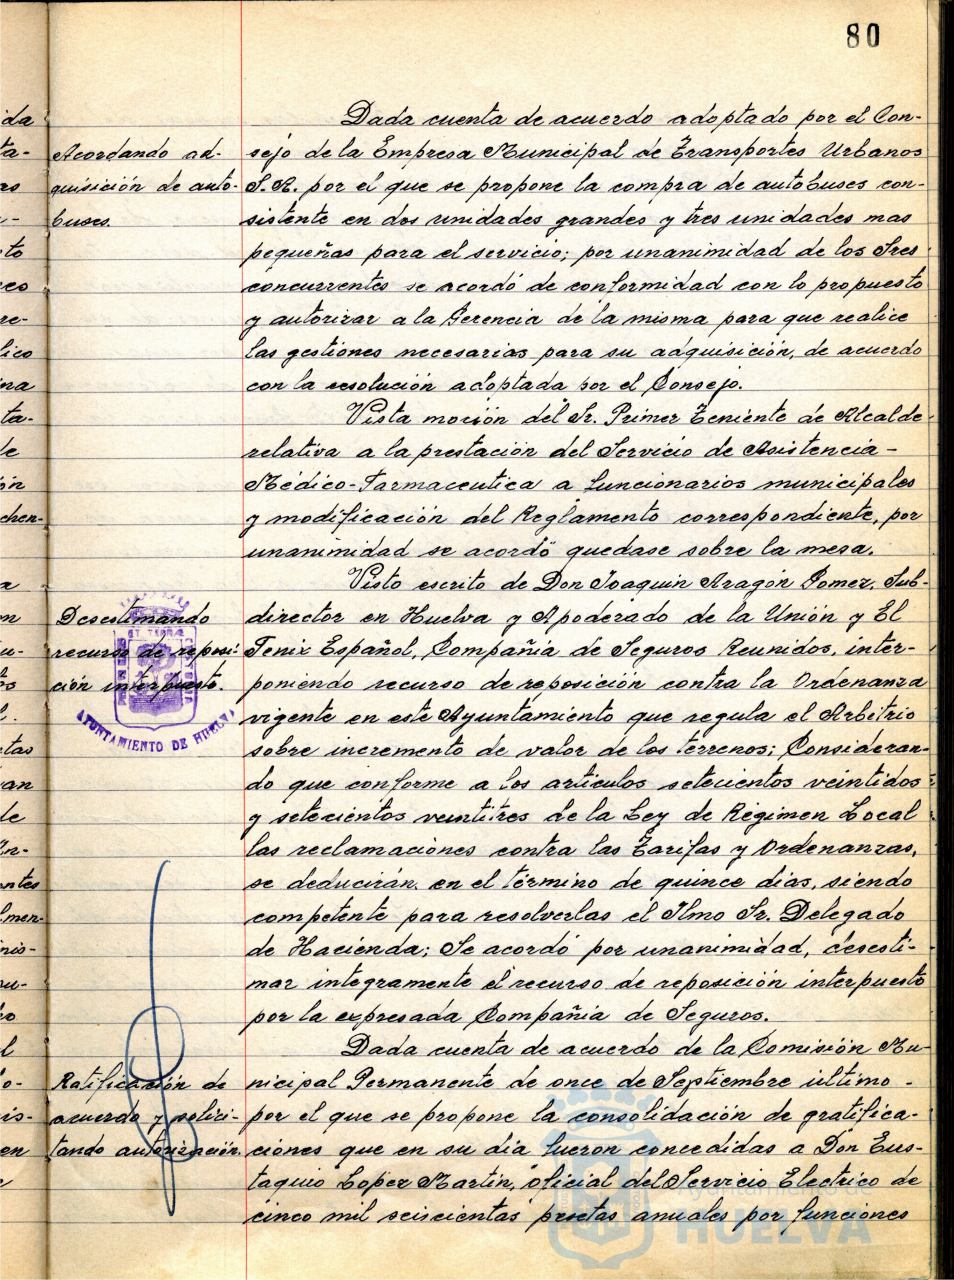 80
Dada cuenta de acuerdo adoptado por el Con-
Acordando ad-
quisición de auto-
buses.
sejo de la Empresa Municipal de Transportes Urbanos
S.A. por el que se propone la compra de autobuses con-
sistente en dos unidades grandes y tres unidades mas
pequeñas para el servicio; por unanimidad de los Sres
concurrentes se acordó de conformidad con lo propuesto
y autorizar a la Gerencia de la misma para que realice
las gestiones necesarias para su adquisición, de acuerdo
con la resolución adoptada por el Consejo.
Vista moción del Sr. Primer Teniente de Alcalde
relativa a la prestación del Servicio de Asistencia-
Médico-Farmaceutica a funcionarios municipales
y modificación del Reglamento correspondiente, por
unanimidad se acordó quedase sobre la mesa.
Visto escrito de Don Joaquin Aragón Gomez, Sub-
Desestimando
recurso de reposi-
ción interpuesto.
director en Huelva y Apoderado de la Unión y El
Fenix Español, Compañia de Seguros Reunidos, inter-
poniendo recurso de reposición contra la Ordenanza
vigente en este Ayuntamiento que regula el Arbitrio
sobre incremento de valor de los terrenos; Consideran-
do que conforme a los articulos setecientos veintidos
y setecientos veintitres de la Ley de Régimen Local
las reclamaciones contra las Tarifas y Ordenanzas,
se deducirán en el término de quince dias, siendo
competente para resolverlas el Ilmo Sr. Delegado
de Hacienda; Se acordó por unanimidad, desesti-
mar integramente el recurso de reposición interpuesto
por la expresada Compañia de Seguros.
AYUNTAMIENTO DE HUELVA
Dada cuenta de acuerdo de la Comisión Mu-
Ratificación de
acuerdo y solici-
tando autorización.
nicipal Permanente de once de Septiembre ultimo -
por el que se propone la consolidación de gratifica-
ciones que en su dia fueron concedidas a Don Eus-
taquio Lopez Martin, oficial del Servicio Electrico de
cinco mil seiscientas pesetas anuales por funciones
Ayuntamiento de
HUELVA